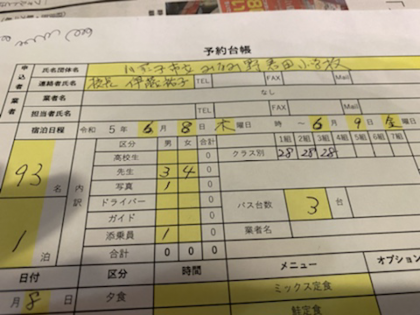 予約台帳
申込者 氏名団体名 八王子市立みなみ野君田小学校
連絡者氏名 校長 伊藤裕子 TEL FAX Mail
業者 業者名 なし
担当者氏名 TEL FAX Mail
宿泊日程 令和 5 年 6 月 8 日 木 曜日 時 〜 6 月 9 日 金 曜
93 名 1 泊
内訳
区分 男 女 合計
高校生 0
先生 3 4 0
写真 1 0
ドライバー 0
ガイド 0
添乗員 1 0
合計 0 0 0
クラス別 1組 2組 3組 4組 5組 6組 7組
28 28 28
バス台数 3 台
業者名
日付 区分 時間 メニュー オプション
月 8 日 夕食 ミックス定食
鮮定食